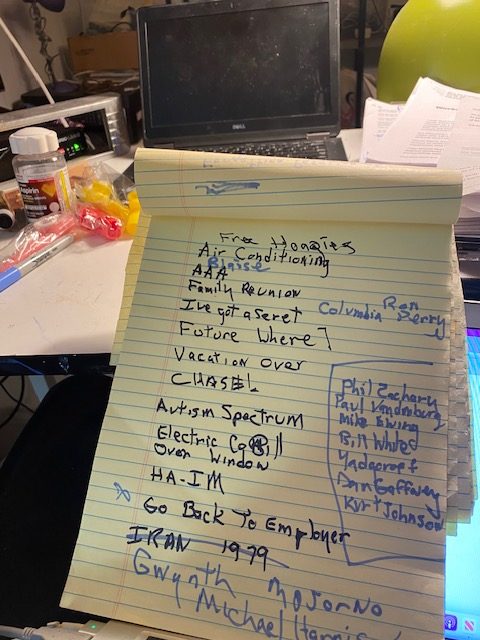 DELL
Aspirin
Free Hoagies
Air Conditioning
Blaise
AAA
Family Reunion
I've got a Seret
Ron
Columbia Perry
Future Where
Vacation Over
CHASEL
Autism Spectrum
Electric Bill
Oven Window
HA-IM
Go Back To Employer
IRAN 1979
Gwynth
Michael Harris
Phil Zachary
Paul Vandenburg
Mike Ewing
Bill White
Dan Gaffney
Kurt Johnson